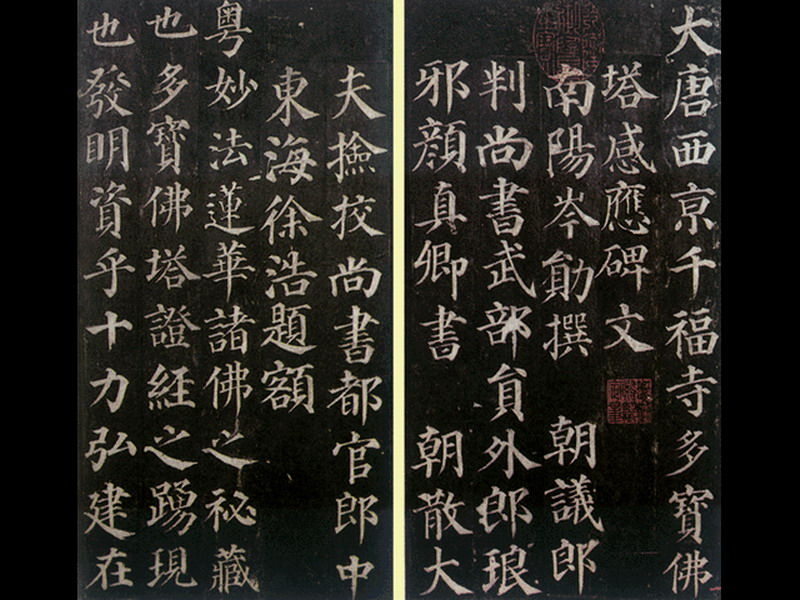 大唐西京千福寺多寶佛
塔感應碑文
南陽岑勛撰 朝議郎
判尚書武部員外郎琅
邪顔真卿書 朝散大
夫撿挍尚書都官郎中
東海徐浩題額
粤妙法蓮華諸佛之祕藏
也多寶佛塔證經之踴現
也發明資乎十力弘建在